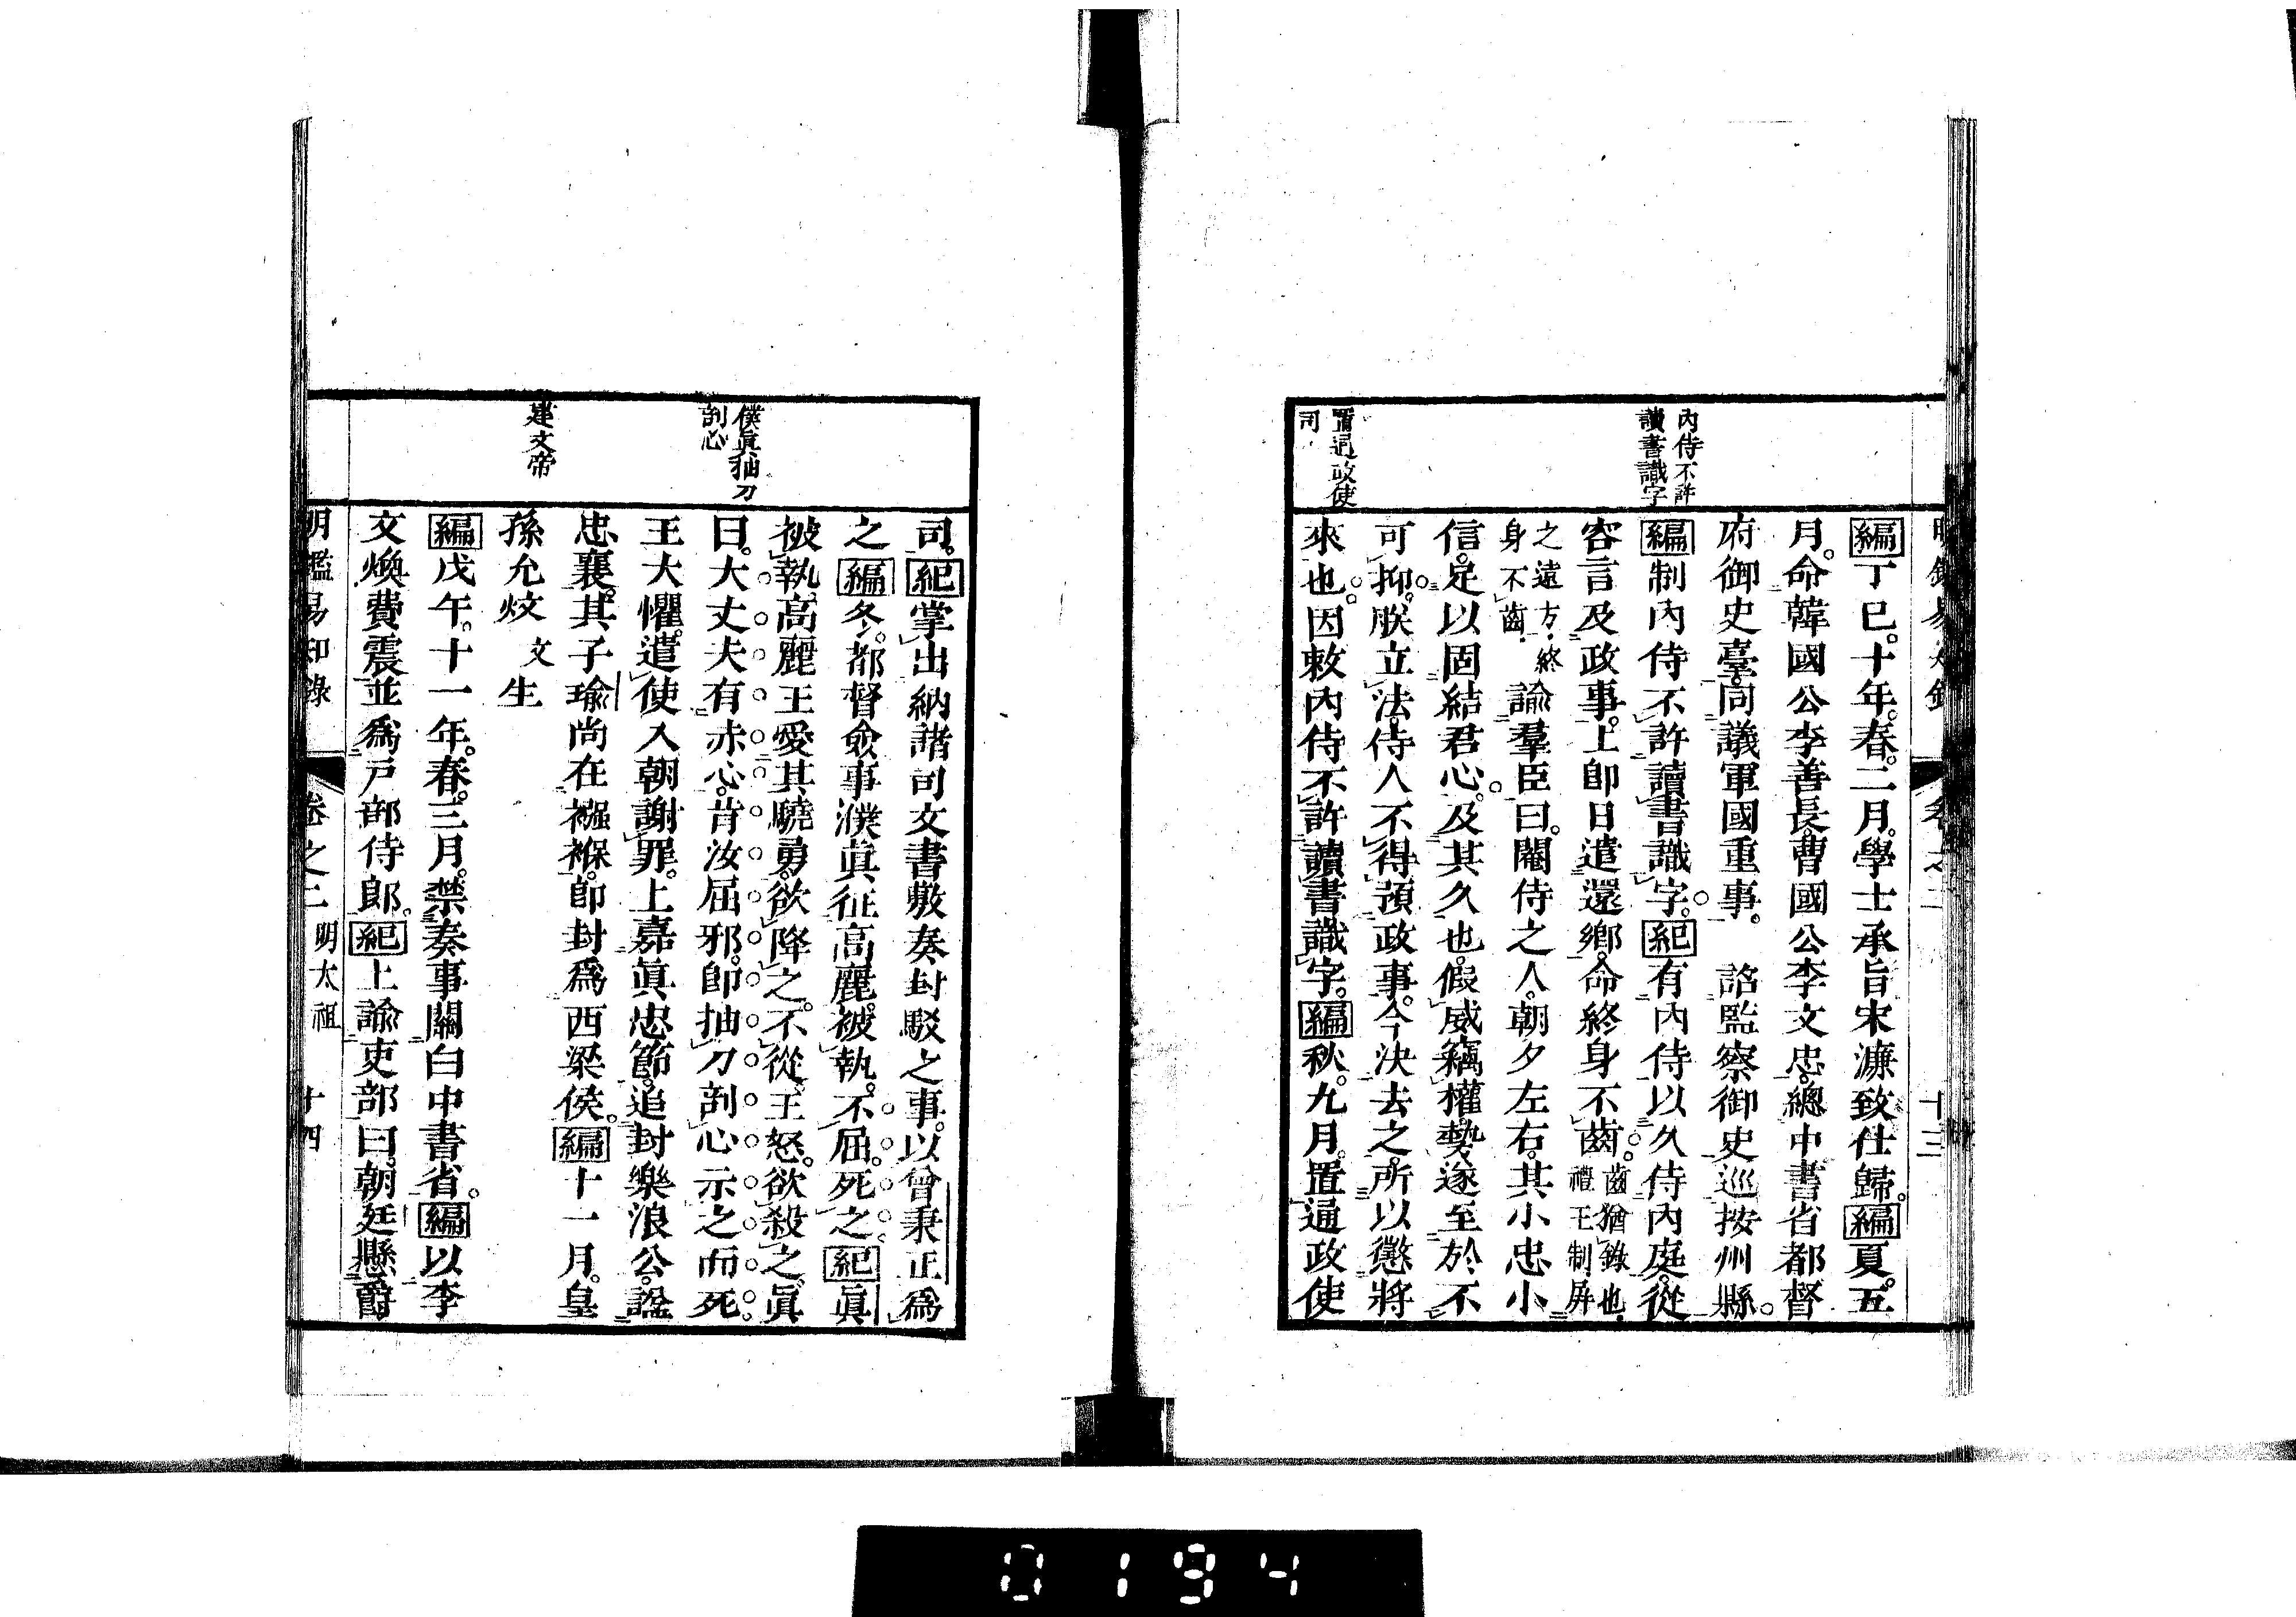 內侍不許
讀書識字
置通政使
司
編丁巳。十年。春。二月。學士承旨宋濂致仕歸。編夏。五
月。命韓國公李善長。曹國公李文忠。總中書省都督
府御史臺。同議軍國重事。 詔監察御史巡按州縣。
編制內侍不許讀書識字。紀有內侍以久侍內庭。從
容言及政事。上卽日遣還鄉。命終身不齒。齒猶錄也。
禮王制。屏
之遠方。終
身不齒。
諭羣臣曰。閹侍之人。朝夕左右。其小忠小
信。足以固結君心。及其久也。假威竊權。勢遂至於不
可抑。朕立法。侍人不得預政事。今決去之。所以懲將
來也。因敕內侍不許讀書識字。編秋。九月。置通政使
十三
僕眞抽刀
剖心
建文帝
司。紀掌出納諸司文書敷奏封駁之事。以曾秉正爲
之編冬。都督僉事濮眞征高麗。被執。不屈。死之。紀眞
被執。高麗王愛其驍勇。欲降之。不從。王怒。欲殺之。眞
曰。大丈夫有赤心。肯汝屈邪。卽抽刀剖心示之而死。
王大懼。遣使入朝謝罪。上嘉眞忠節。追封樂浪公。諡
忠襄。其子瑜尚在襁褓。卽封爲西梁侯。編十一月。皇
孫允炆文生
編戊午。十一年。春。三月。禁奏事關白中書省。編以李
文煥費震並爲戸部侍郎。紀上諭吏部曰。朝廷懸爵
明鑑易知錄 卷之二 明太祖 十四
0194